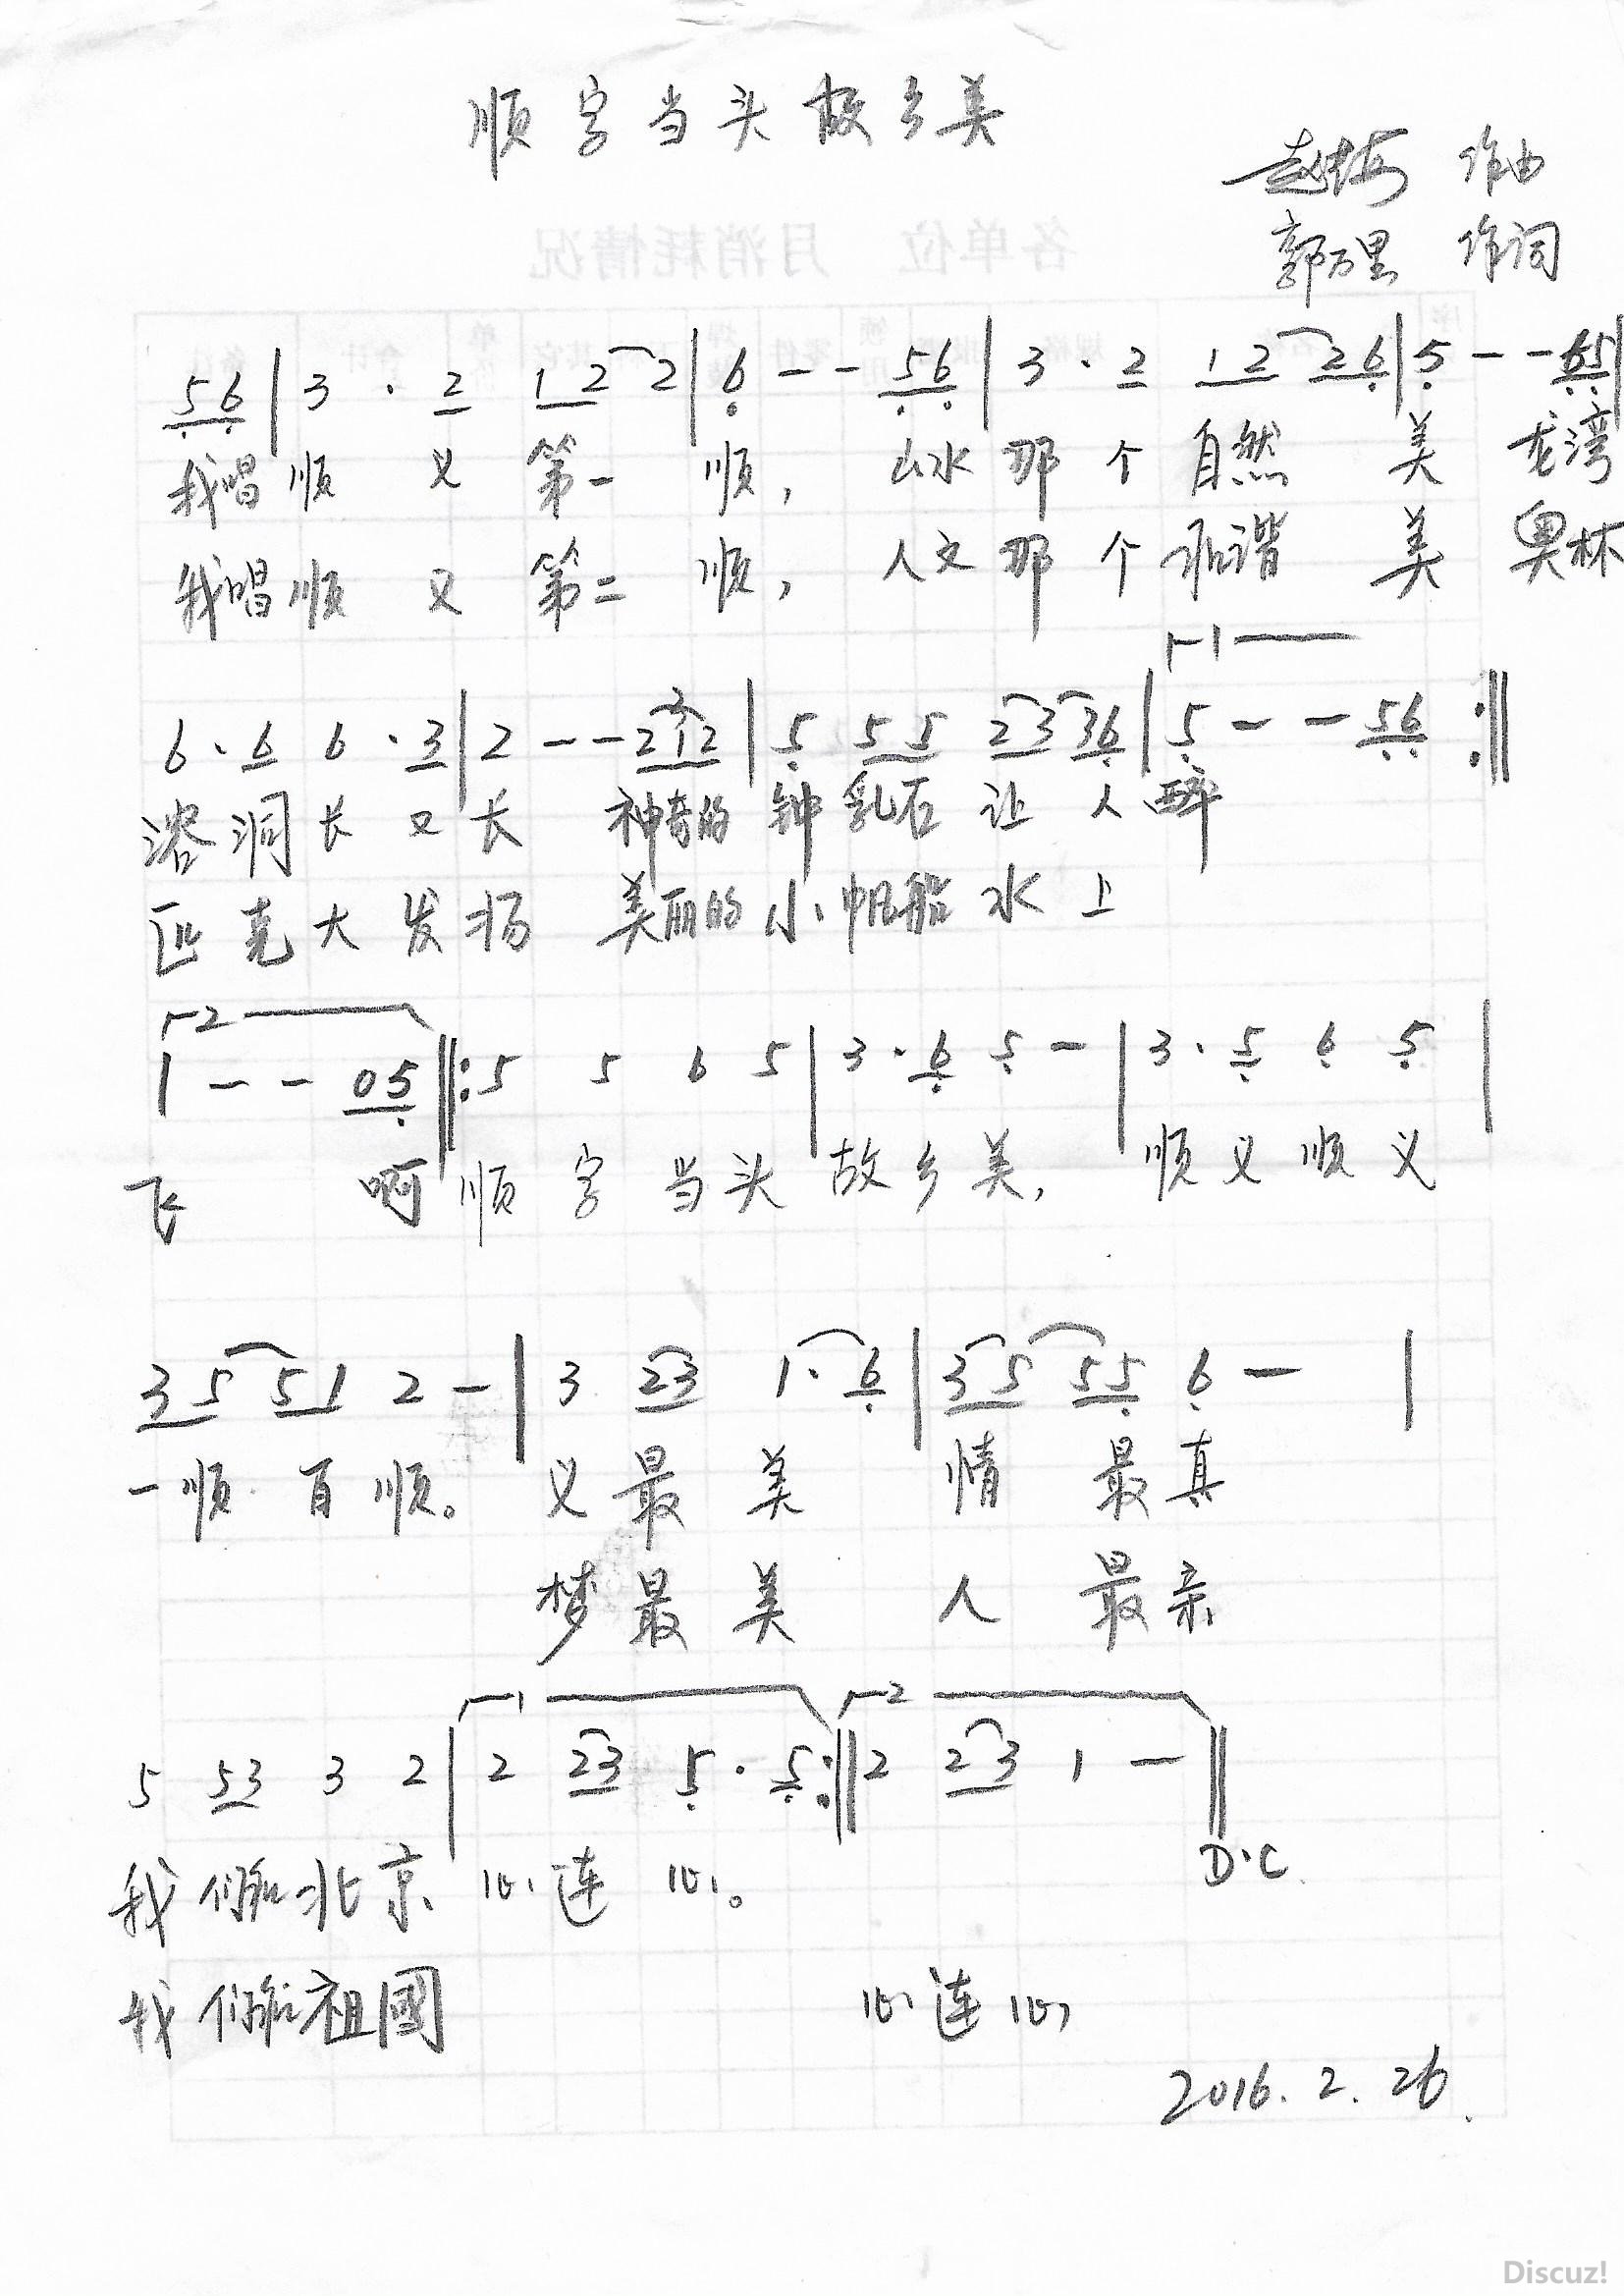 顺字当头故乡美
赵梅 作曲
郭万里 作词
5 6 | 3 · 2 1 2 2 | 6 - - 5 6 | 3 · 2 1 2 2 6 | 5 - - 6 5 |
我唱顺义第一顺， 山水那个自然美 龙湾
我唱顺义第二顺， 人文那个和谐美 奥林
1
6 · 6 6 · 3 | 2 - - 2 1 2 | 5 5 5 2 3 3 6 | 5 - - 5 6 :||
溶洞长又长 神奇的钟乳石让人醉
匹克大发扬 美丽的小帆船水上
2
1 - - 0 5 ||: 5 5 6 5 | 3 · 6 5 - | 3 · 5 6 5 |
飞 啊顺字当头故乡美， 顺义顺义
3 5 5 1 2 - | 3 2 3 1 · 6 | 3 5 5 5 6 - |
一顺百顺。 义最美 情最真
梦最美 人最亲
1 2
5 5 3 3 2 | 2 2 3 5 · 5 :|| 2 2 3 1 - ||
D·C
我们和北京心连心。
我们和祖國 心连心
2016.2.26
Discuz!